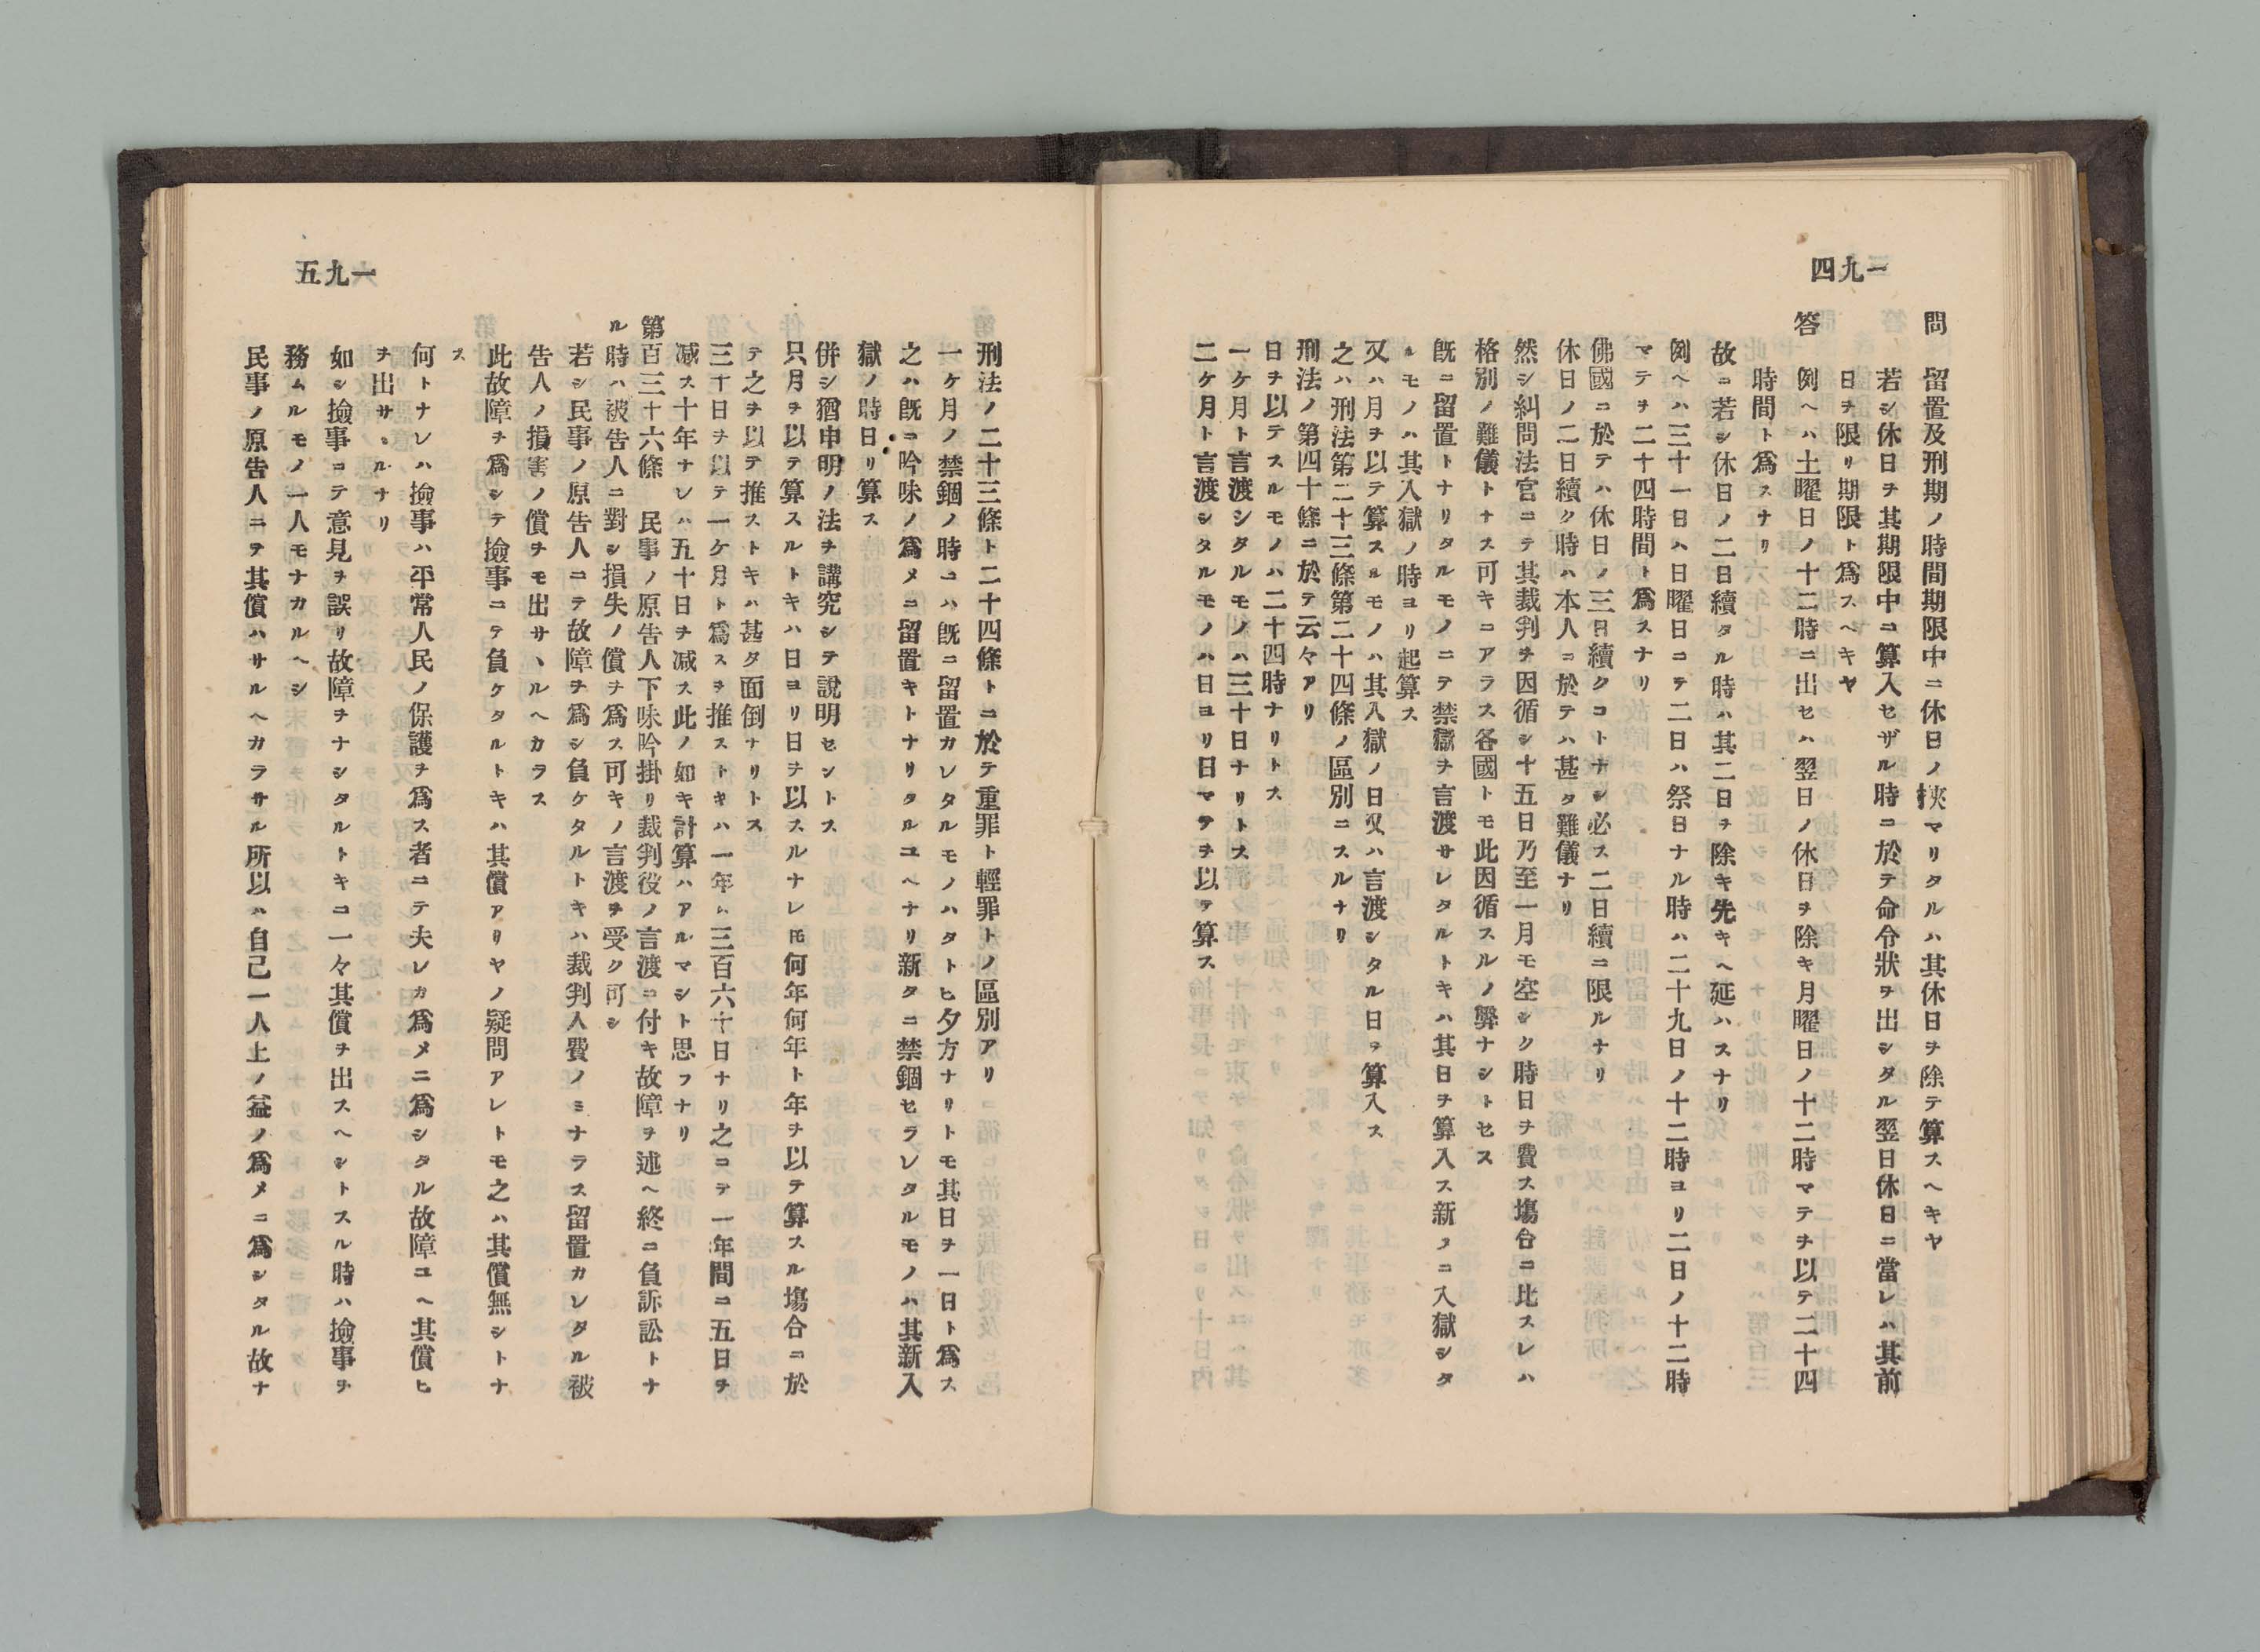 一九四
問　留置及刑期ノ時間期限中ニ休日ノ挾マリタルハ其休日ヲ除テ算スヘキヤ
若シ休日ヲ其期限中ニ算入セザル時ニ於テ命令狀ヲ出シタル翌日休日ニ當レハ其前
日ヲ限リ期限ト爲スヘキヤ
答　例ヘハ土曜日ノ十二時ニ出セハ翌日ノ休日ヲ除キ月曜日ノ十二時マテヲ以テ二十四
時間ト爲スナリ
故ニ若シ休日ノ二日續タル時ハ其二日ヲ除キ先キヘ延ハスナリ
例ヘハ三十一日ハ日曜日ニテ二日ハ祭日ナル時ハ二十九日ノ十二時ヨリ二日ノ十二時
マテヲ二十四時間ト爲スナリ
佛國ニ於テハ休日ノ三日續クコトナシ必ス二日續ニ限ルナリ
休日ノ二日續ク時ハ本人ニ於テハ甚タ難儀ナリ
然シ糾問法官ニテ其裁判ヲ因循シ十五日乃至一月モ空シク時日ヲ費ス塲合ニ比スレハ
格別ノ難儀トナス可キニアラス各國トモ此因循スルノ弊ナシトセス
既ニ留置トナリタルモノニテ禁獄ヲ言渡サレタルトキハ其日ヲ算入ス新タニ入獄シタ
ルモノハ其入獄ノ時ヨリ起算ス
又ハ月ヲ以テ算スルモノハ其入獄ノ日又ハ言渡シタル日ヲ算入ス
之ハ刑法第二十三條第二十四條ノ區別ニスルナリ
刑法ノ第四十條ニ於テ云々アリ
日ヲ以テスルモノハ二十四時ナリトス
一ケ月ト言渡シタルモノハ三十日ナリトス
二ケ月ト言渡シタルモノハ日ヨリ日マテヲ以テ算ス
一九五
刑法ノ二十三條ト二十四條トニ於テ重罪ト輕罪トノ區別アリ
一ケ月ノ禁錮ノ時ニハ既ニ留置カレタルモノハタトヒ夕方ナリトモ其日ヲ一日ト爲ス
之ハ既ニ吟味ノ爲メニ留置キトナリタルユヘナリ新タニ禁錮セラレタルモノハ其新入
獄ノ時日リ算ス
併シ猶申明ノ法ヲ講究シテ說明セントス
只月ヲ以テ算スルトキハ日ヨリ日ヲ以スルナレ𪜈何年何年ト年ヲ以テ算スル塲合ニ於
テ之ヲ以テ推ストキハ甚タ面倒ナリトス
三十日ヲ以テ一ケ月ト爲スヲ推ストキハ一年ハ三百六十日ナリ之ニテ一年間ニ五日ヲ
减ス十年ナレハ五十日ヲ减ス此ノ如キ計算ハアルマシト思フナリ
第百三十六條　民事ノ原告人下味吟掛リ裁判役ノ言渡ニ付キ故障ヲ述ヘ終ニ負訴訟トナ
ル時ハ被告人ニ對シ損失ノ償ヲ爲ス可キノ言渡ヲ受ク可シ
若シ民事ノ原告人ニテ故障ヲ爲シ負ケタルトキハ裁判入費ノミナラス留置カレタル被
告人ノ損害ノ償ヲモ出サヽルヘカラス
此故障ヲ爲シテ撿事ニテ負ケタルトキハ其償アリヤノ疑問アレトモ之ハ其償無シトナ
ス
何トナレハ撿事ハ平常人民ノ保護ヲ爲ス者ニテ夫レカ爲メニ爲シタル故障ユヘ其償ヒ
ヲ出サヽルナリ
如シ撿事ニテ意見ヲ誤リ故障ヲナシタルトキニ一々其償ヲ出スヘシトスル時ハ撿事ヲ
務ムルモノ一人モナカルヘシ
民事ノ原告人ニテ其償ハサルヘカラサル所以ハ自己一人上ノ益ノ爲メニ爲シタル故ナ